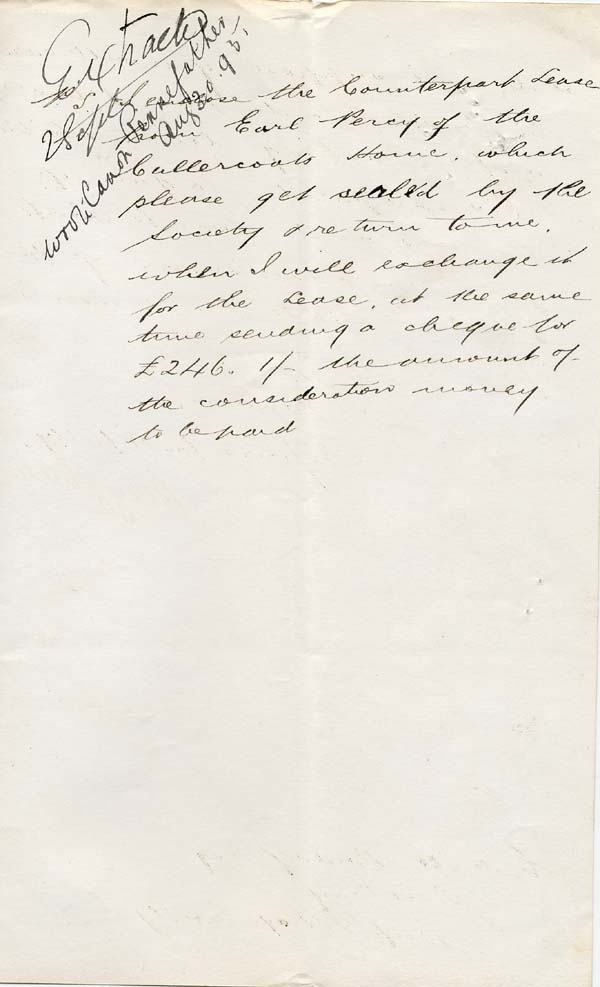 Extracts
2 Sept
Wrote Canon Pennefather
Aug 30. 95.
I enclose the Counterpart Lease
from Earl Percy of the
Cullercoats Home, which
please get sealed by the
Society & return to me,
when I will exchange it
for the Lease, at the same
time sending a cheque for
£246. 1/- the amount of
the consideration money
to be paid